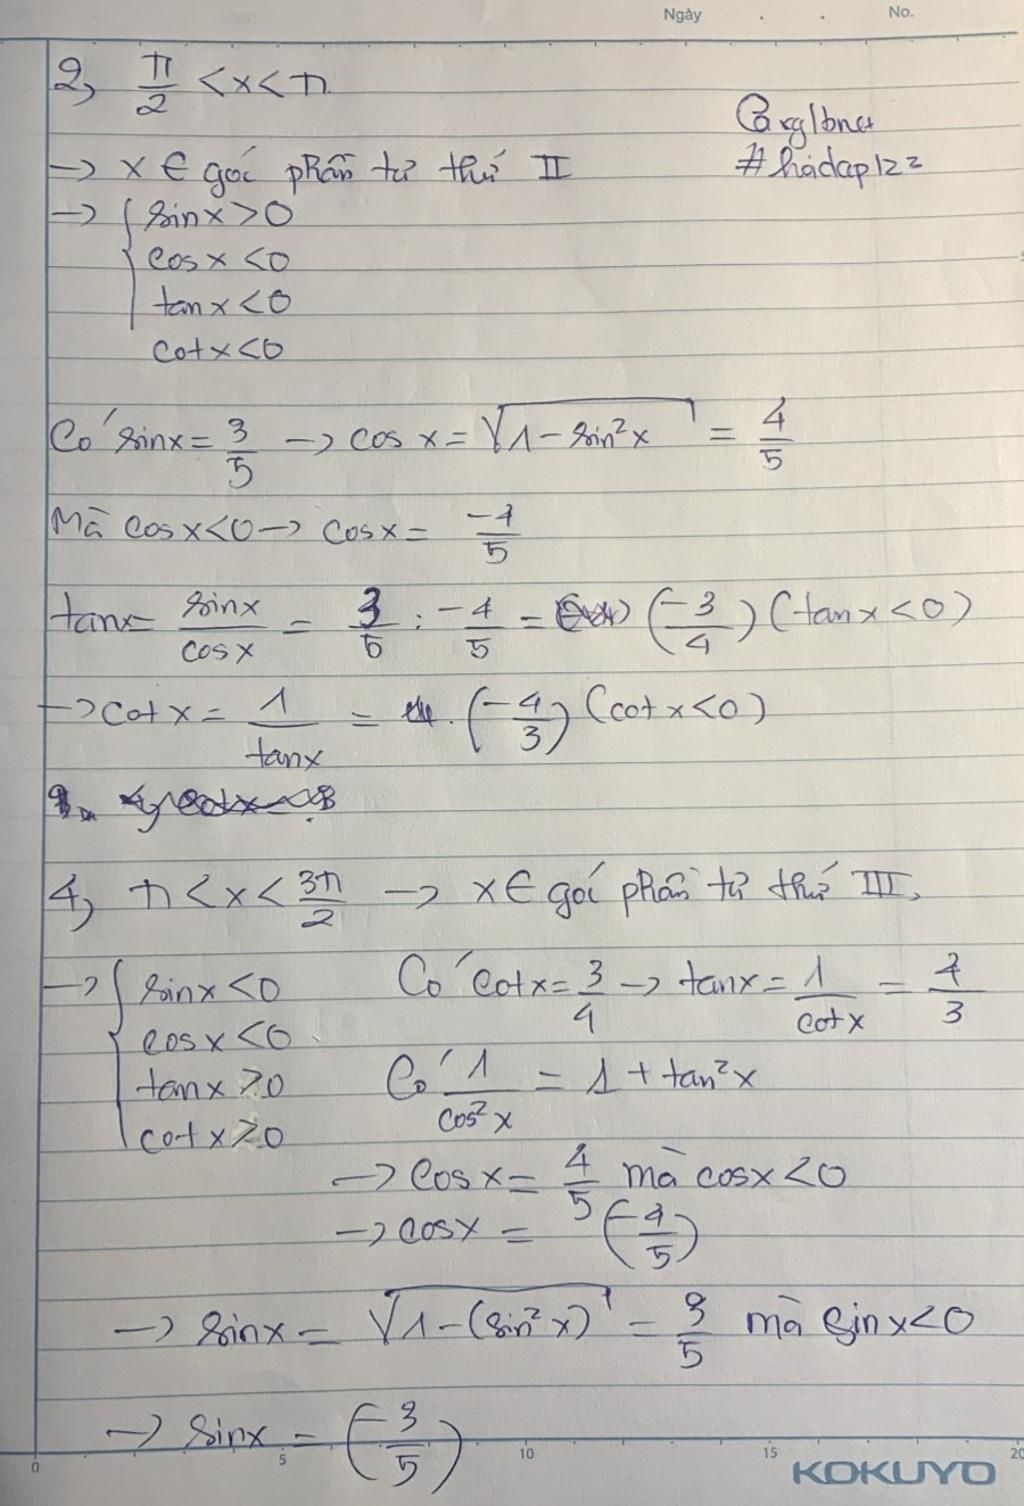 Ngày . . No.
2, π/2 < x < π
→ x ∈ góc phần tư thứ II
#hoidap122
→ { sinx > 0
cosx < 0
tanx < 0
cotx < 0
Có sinx = 3/5 → cos x = √(1 - sin²x) = 4/5
Mà cosx < 0 → cosx = -4/5
tanx = sinx/cosx = 3/5 : -4/5 = (-3/4) (tanx < 0)
→ cotx = 1/tanx = (-4/3) (cotx < 0)
4, π < x < 3π/2 → x ∈ góc phần tư thứ III,
→ { sinx < 0 Có cotx = 3/4 → tanx = 1/cotx = 4/3
cosx < 0
tanx > 0 Có 1/cos²x = 1 + tan²x
cotx > 0
→ cosx = 4/5 mà cosx < 0
→ cosx = (-4/5)
→ sinx = √(1 - (sin²x)) = 3/5 mà sinx < 0
→ sinx = (-3/5)
0 5 10 15 20
KOKUYO